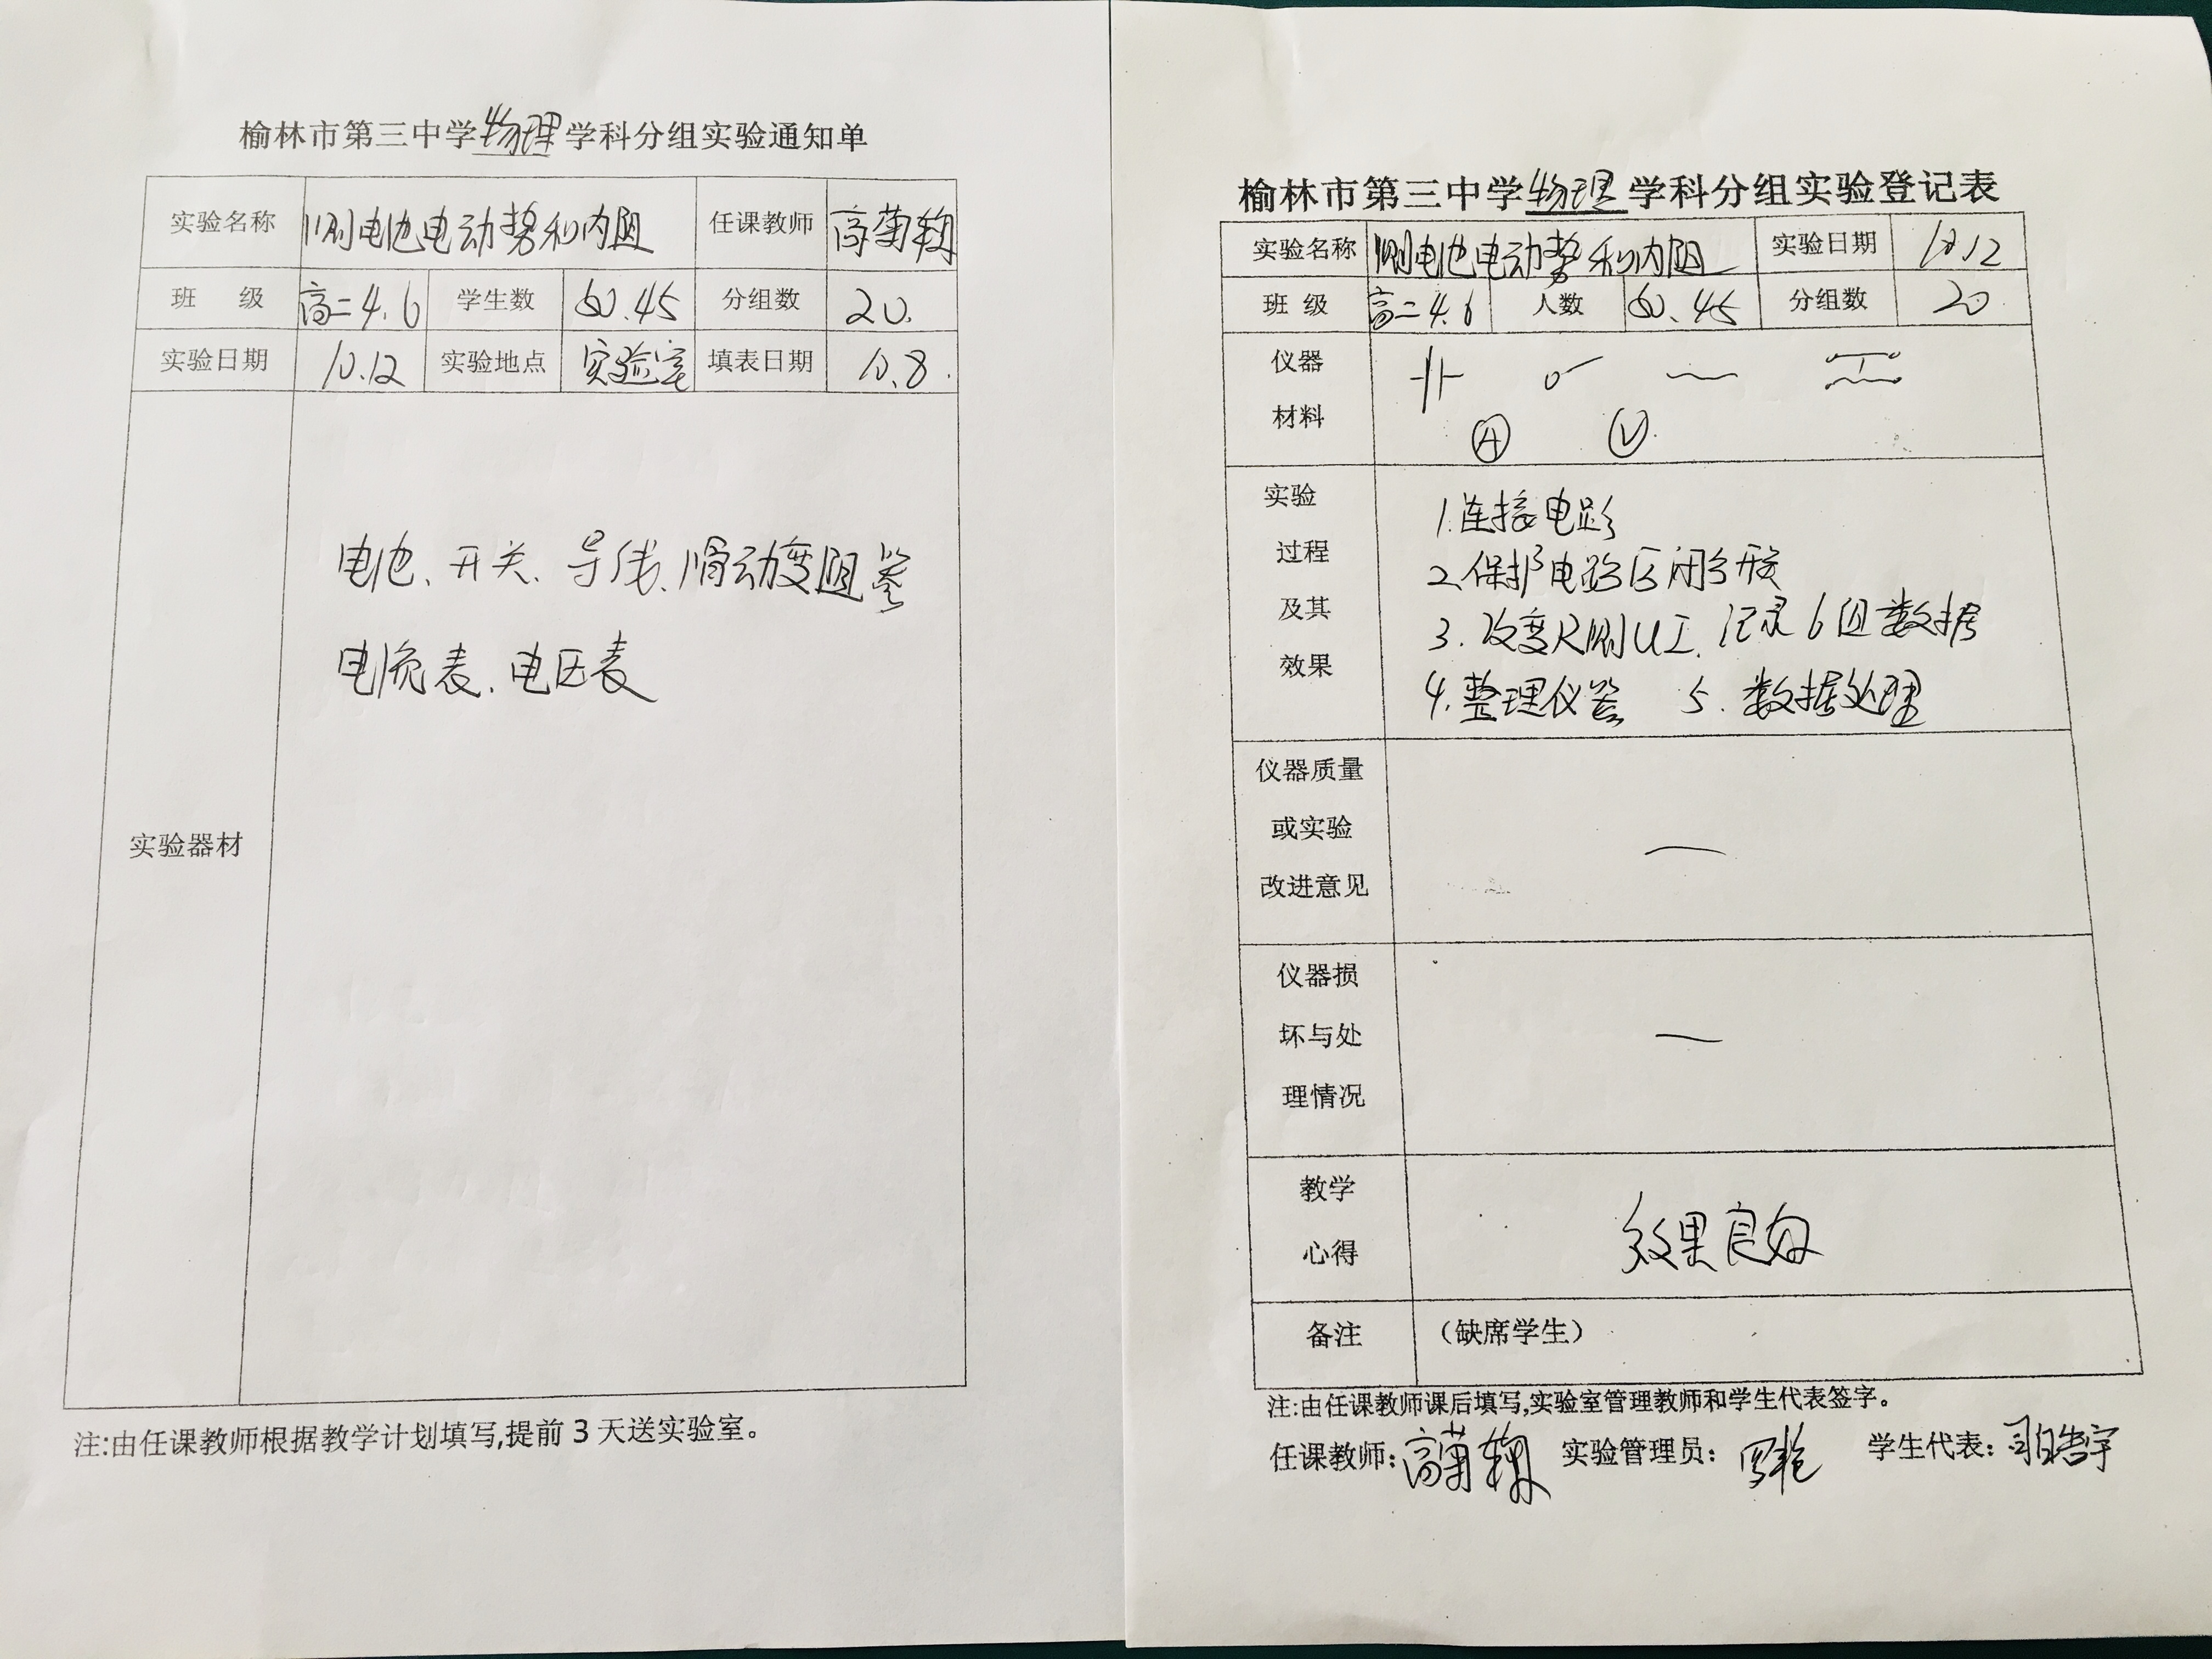 榆林市第三中学物理学科分组实验通知单
实验名称 测电池电动势和内阻 任课教师 高菊
班 级 高二4.6 学生数 60.45 分组数 20.
实验日期 10.12 实验地点 实验室 填表日期 10.8.
实验器材
电池、开关、导线、滑动变阻器
电流表、电压表
注:由任课教师根据教学计划填写,提前3天送实验室。
榆林市第三中学物理学科分组实验登记表
实验名称 测电池电动势和内阻 实验日期 10.12
班 级 高二4.6 人数 60.45 分组数 20
仪器
材料
A V
实验
过程
及其
效果
1.连接电路
2.保护电路后闭合开关
3.改变R测U I.记录6组数据
4.整理仪器 5.数据处理
仪器质量
或实验
改进意见
—
仪器损
坏与处
理情况
—
教学
心得
效果良好
备注 （缺席学生）
注:由任课教师课后填写,实验室管理教师和学生代表签字。
任课教师:高菊 实验管理员: 学生代表:浩宇